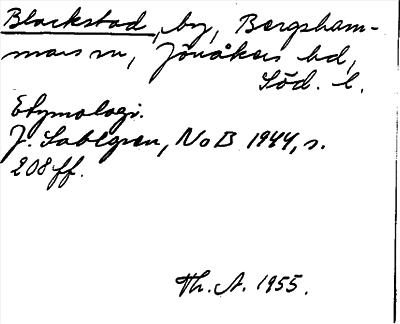 Blackstad, by, Bergsham-
mars sn, Jönåkers hd,
Söd. l.
Etymologi.
J. Sahlgren, NoB 1944, s.
208 ff.
Th. A. 1955.